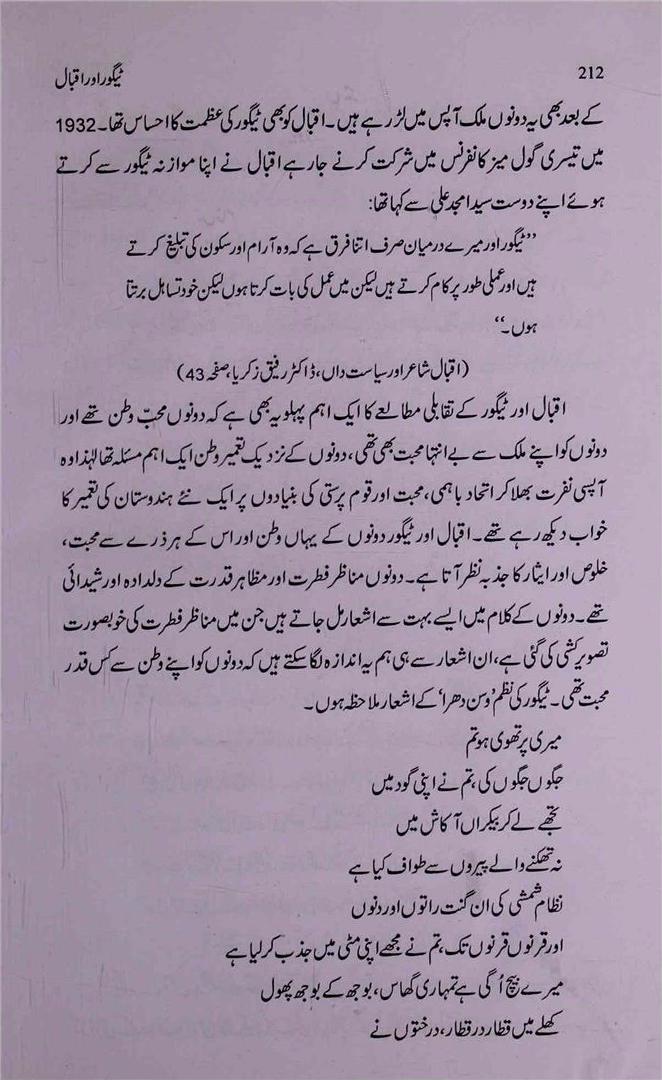 212
ٹیگور اور اقبال
کے بعد بھی یہ دونوں ملک آپس میں لڑ رہے ہیں۔ اقبال کو بھی ٹیگور کی عظمت کا احساس تھا۔ 1932
میں تیسری گول میز کانفرنس میں شرکت کرنے جا رہے اقبال نے اپنا موازنہ ٹیگور سے کرتے
ہوئے اپنے دوست سید امجد علی سے کہا تھا:
’’ٹیگور اور میرے درمیان صرف اتنا فرق ہے کہ وہ آرام اور سکون کی تبلیغ کرتے
ہیں اور عملی طور پر کام کرتے ہیں لیکن میں عمل کی بات کرتا ہوں لیکن خود تساہل برتتا
ہوں۔‘‘
(اقبال شاعر اور سیاست داں، ڈاکٹر رفیق زکریا، صفحہ 43)
اقبال اور ٹیگور کے تقابلی مطالعے کا ایک اہم پہلو یہ بھی ہے کہ دونوں محبّ وطن تھے اور
دونوں کو اپنے ملک سے بے انتہا محبت بھی تھی، دونوں کے نزدیک تعمیر وطن ایک اہم مسئلہ تھا لہٰذا وہ
آپسی نفرت بھلا کر اتحاد باہمی، محبت اور قوم پرستی کی بنیادوں پر ایک نئے ہندوستان کی تعمیر کا
خواب دیکھ رہے تھے۔ اقبال اور ٹیگور دونوں کے یہاں وطن اور اس کے ہر ذرے سے محبت،
خلوص اور ایثار کا جذبہ نظر آتا ہے۔ دونوں مناظر فطرت اور مظاہر قدرت کے دلدادہ اور شیدائی
تھے۔ دونوں کے کلام میں ایسے بہت سے اشعار مل جاتے ہیں جن میں مناظر فطرت کی خوبصورت
تصویر کشی کی گئی ہے، ان اشعار سے ہی ہم یہ اندازہ لگا سکتے ہیں کہ دونوں کو اپنے وطن سے کس قدر
محبت تھی۔ ٹیگور کی نظم ’وسن دھرا‘ کے اشعار ملاحظہ ہوں۔
میری پرتھوی ہو تم
جگوں جگوں کی، تم نے اپنی گود میں
مجھے لے کر بیکراں آکاش میں
نہ تھکنے والے پیروں سے طواف کیا ہے
نظام شمشی کی ان گنت راتوں اور دنوں
اور قرنوں قرنوں تک، تم نے مجھے اپنی مٹی میں جذب کر لیا ہے
میرے بیچ اُگی ہے تمہاری گھاس، بوجھ کے بوجھ پھول
کھلے میں قطار در قطار، درختوں نے